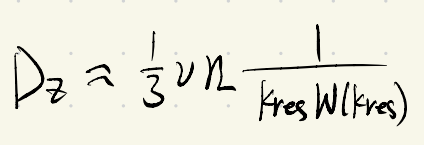 D_z ≈ 1/3 v r_L 1/(k_res W(k_res))